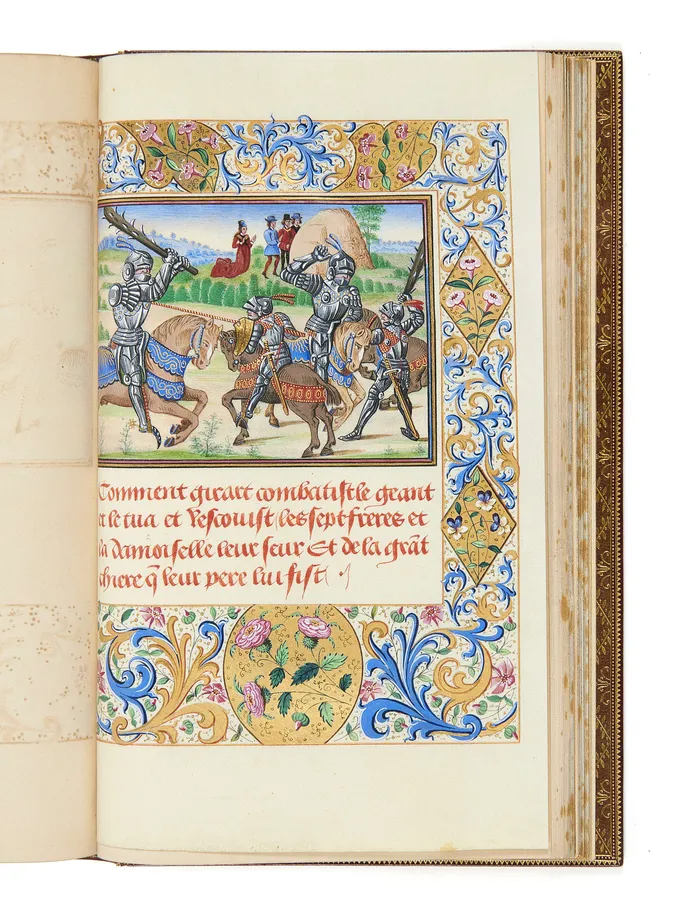 Comment girart combatist le geant
et le tua et Rescouist les sept freres et
la damoiselle leur seur Et de la grāt
chiere q̄ leur pere lui fist